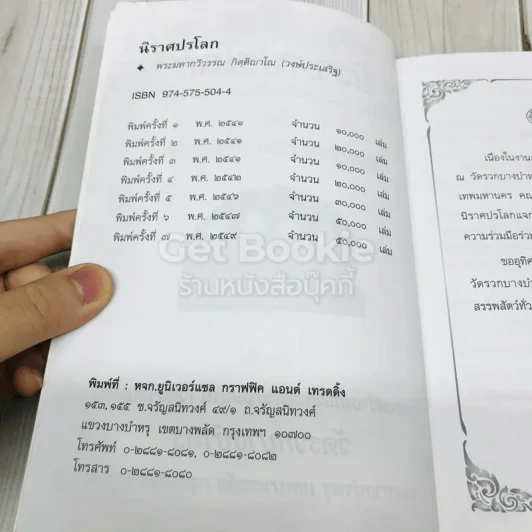 นิราศปรโลก
✦ พระมหากวีวรรณ กิตติญาโณ (วงษ์ประเสริฐ)
ISBN 974-575-504-4
พิมพ์ครั้งที่ ๑ พ.ศ. ๒๕๔๑ จำนวน ๑๐,๐๐๐ เล่ม
พิมพ์ครั้งที่ ๒ พ.ศ. ๒๕๔๑ จำนวน ๒๐,๐๐๐ เล่ม
พิมพ์ครั้งที่ ๓ พ.ศ. ๒๕๔๑ จำนวน ๑๐,๐๐๐ เล่ม
พิมพ์ครั้งที่ ๔ พ.ศ. ๒๕๔๒ จำนวน ๒๐,๐๐๐ เล่ม
พิมพ์ครั้งที่ ๕ พ.ศ. ๒๕๔๖ จำนวน ๓๐,๐๐๐ เล่ม
พิมพ์ครั้งที่ ๖ พ.ศ. ๒๕๔๗ จำนวน ๕๐,๐๐๐ เล่ม
พิมพ์ครั้งที่ ๗ พ.ศ. ๒๕๔๙ จำนวน ๕๐,๐๐๐ เล่ม
Get Bookie
ร้านหนังสือบุ๊คกี้
พิมพ์ที่ : หจก.ยูนิเวอร์แซล กราฟฟิค แอนด์ เทรดดิ้ง
๑๕๓,๑๕๕ ซ.จรัญสนิทวงศ์ ๔๙/๑ ถ.จรัญสนิทวงศ์
แขวงบางบำหรุ เขตบางพลัด กรุงเทพฯ ๑๐๗๐๐
โทรศัพท์ ๐-๒๘๘๑-๘๐๘๑, ๐-๒๘๘๑-๘๐๘๒
โทรสาร ๐-๒๘๘๑-๘๐๘๐
เนื่องในงาน
ณ วัดรวกบางบำห
เทพมหานคร คณ
นิราศปรโลกแจก
ความร่วมมือร่วม
ขออุทิศ
วัดรวกบางบำ
สรรพสัตว์ทั่ว